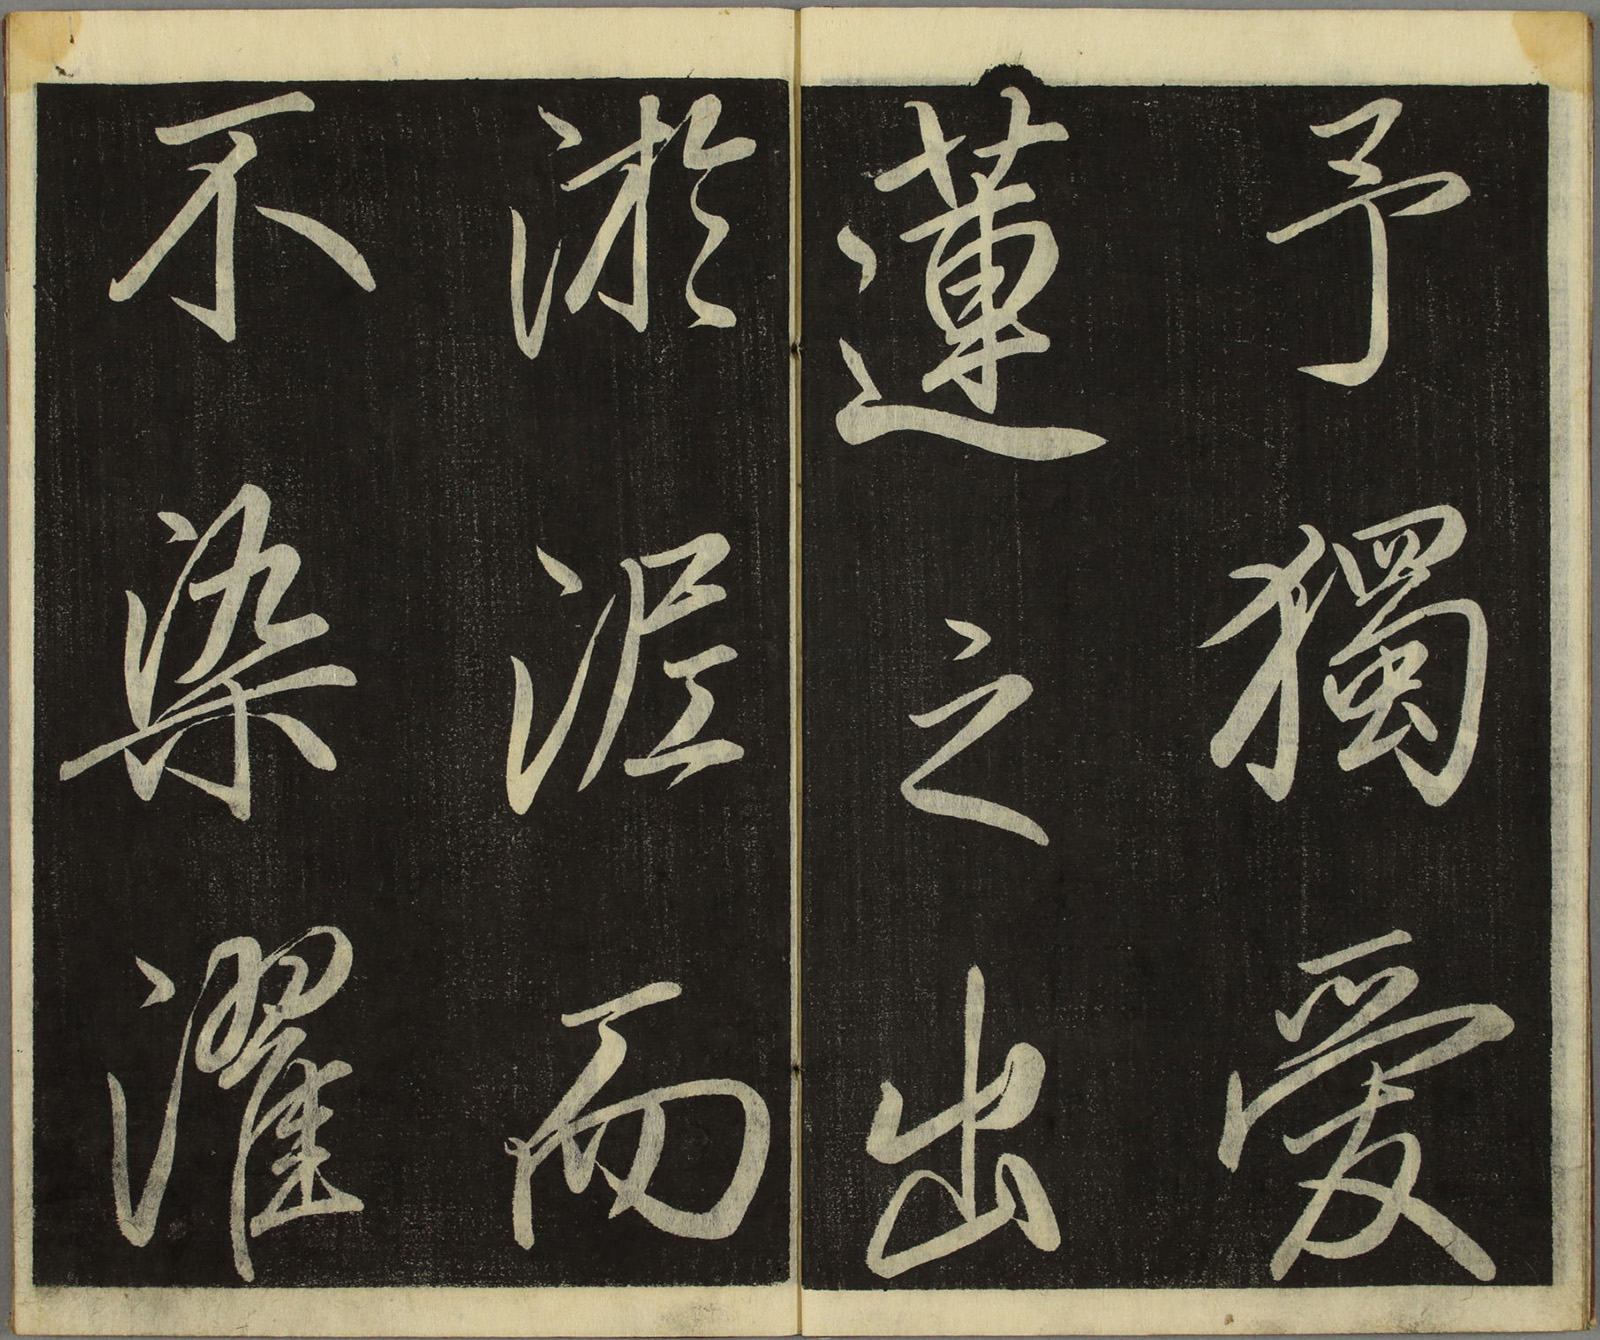 予獨愛
蓮之出
淤泥而
不染濯